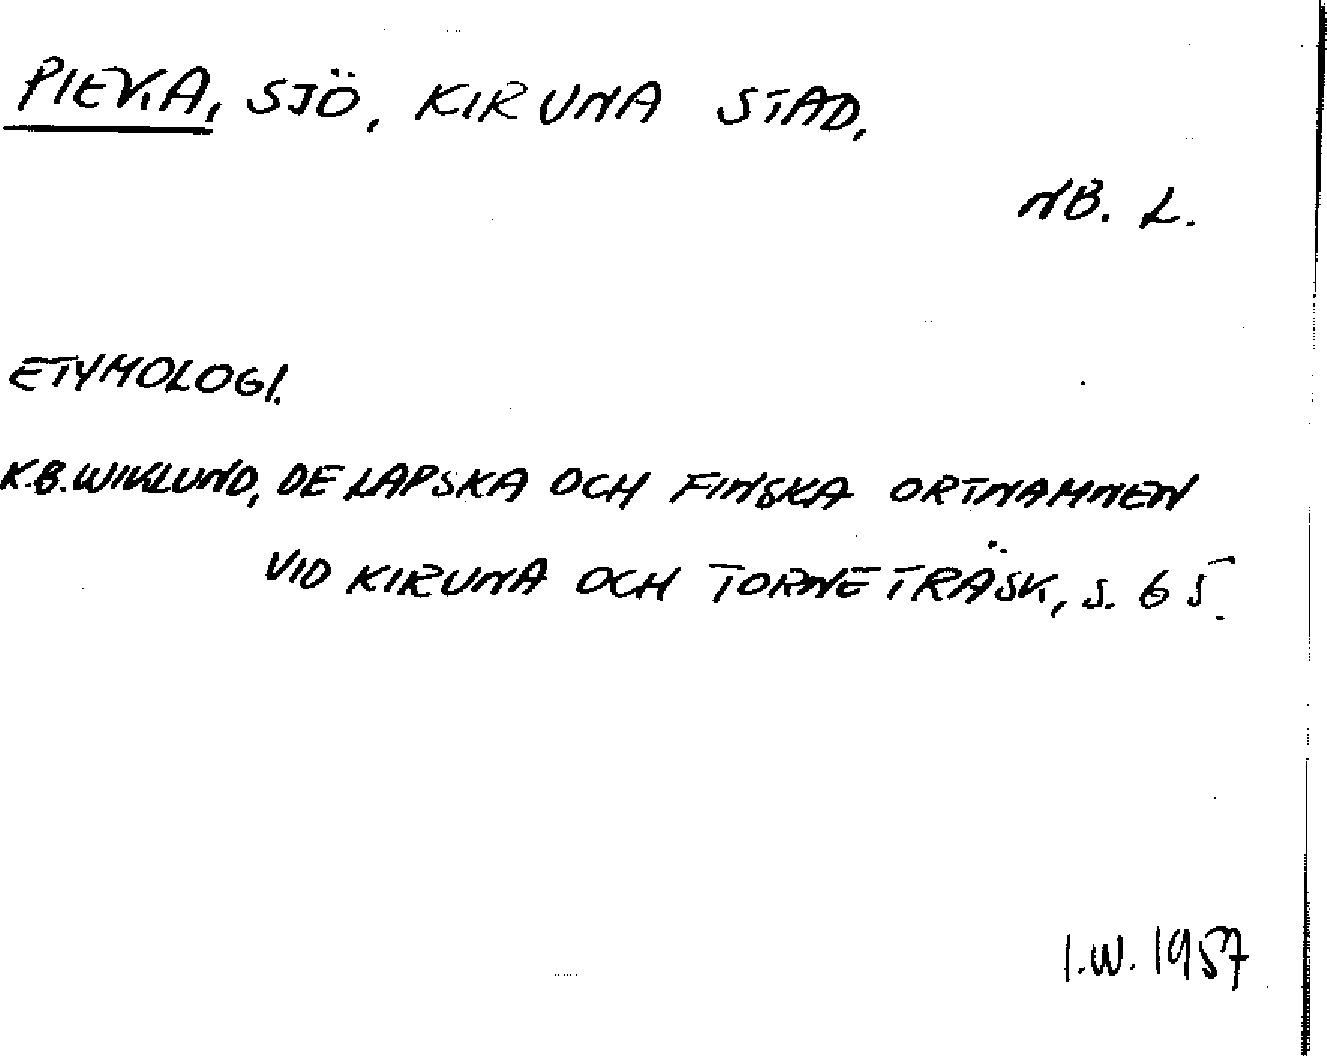 PIEKA, SJÖ, KIRUNA STAD,
NB. L.
ETYMOLOGI.
K.B. WIKLUND, DE LAPSKA OCH FINSKA ORTNAMNEN
VID KIRUNA OCH TORNETRÄSK, S. 65.
I.W. 1957